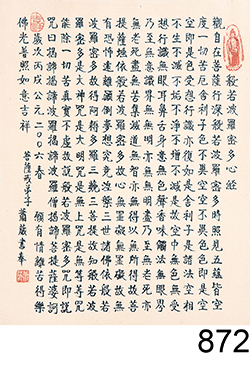 般若波羅蜜多心經
觀自在菩薩行深般若波羅蜜多時照見五蘊皆空
度一切苦厄舍利子色不異空空不異色色即是空
空即是色受想行識亦復如是舍利子是諸法空相
不生不滅不垢不淨不增不減是故空中無色無受
想行識無眼耳鼻舌身意無色聲香味觸法無眼界
乃至無意識界無無明亦無無明盡乃至無老死亦
無老死盡無苦集滅道無智亦無得以無所得故菩
提薩埵依般若波羅蜜多故心無罣礙無罣礙故無
有恐怖遠離顛倒夢想究竟涅槃三世諸佛依般若
波羅蜜多故得阿耨多羅三藐三菩提故知般若波
羅蜜多是大神咒是大明咒是無上咒是無等等咒
能除一切苦真實不虛故說般若波羅蜜多咒即說
咒曰揭諦揭諦波羅揭諦波羅僧揭諦菩提薩婆訶
歲次丙戌公元二00六春 願有情離苦得樂
佛光普照如意吉祥 菩薩戒弟子 書奉
872